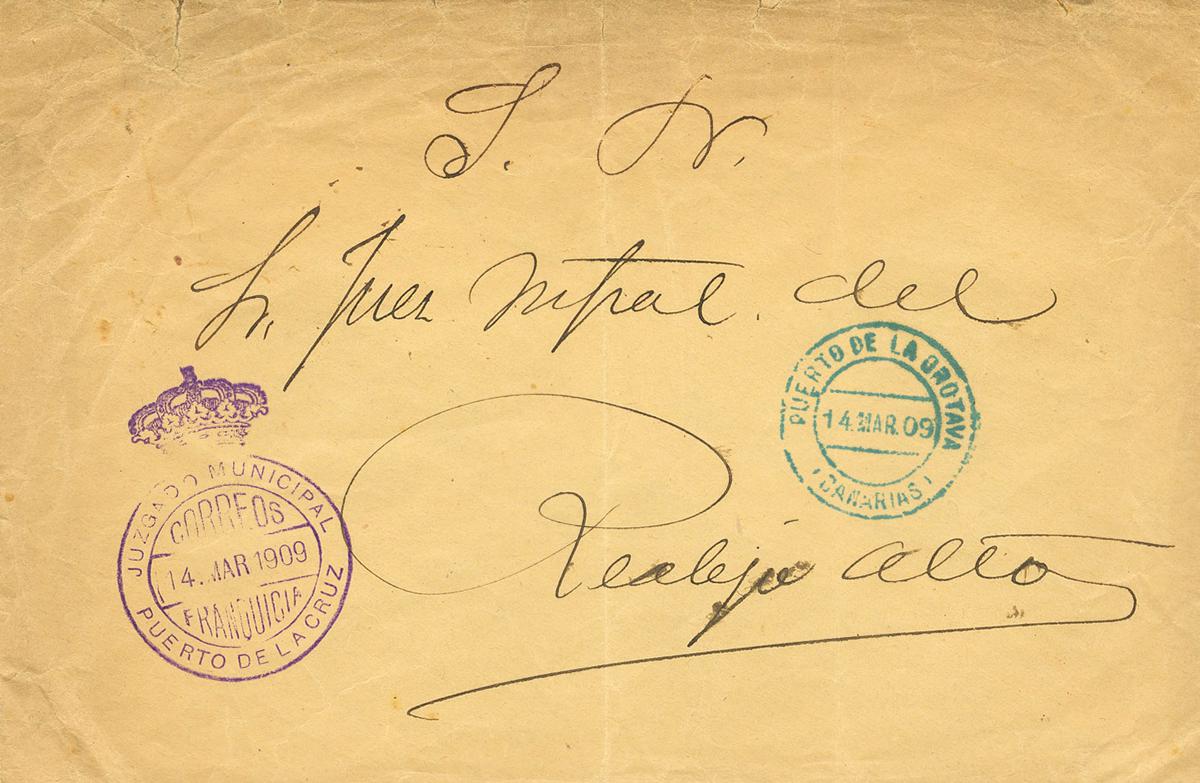 S. N.
Sr. Juez Mpal. del
Realejo Alto
PUERTO DE LA OROTAVA
14.MAR.09
(CANARIAS)
JUZGADO MUNICIPAL
CORREOS
14.MAR 1909
FRANQUICIA
PUERTO DE LA CRUZ